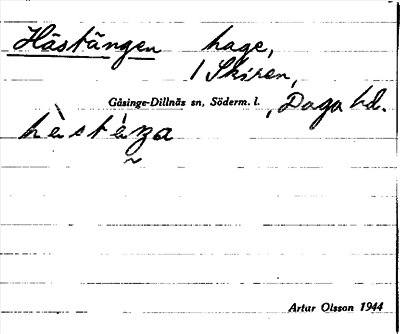 Hästängen hage,
1 Skiren,
Gåsinge-Dillnäs sn, Söderm. l., Daga hd.
hὲstὲŋa
Artur Olsson 1944